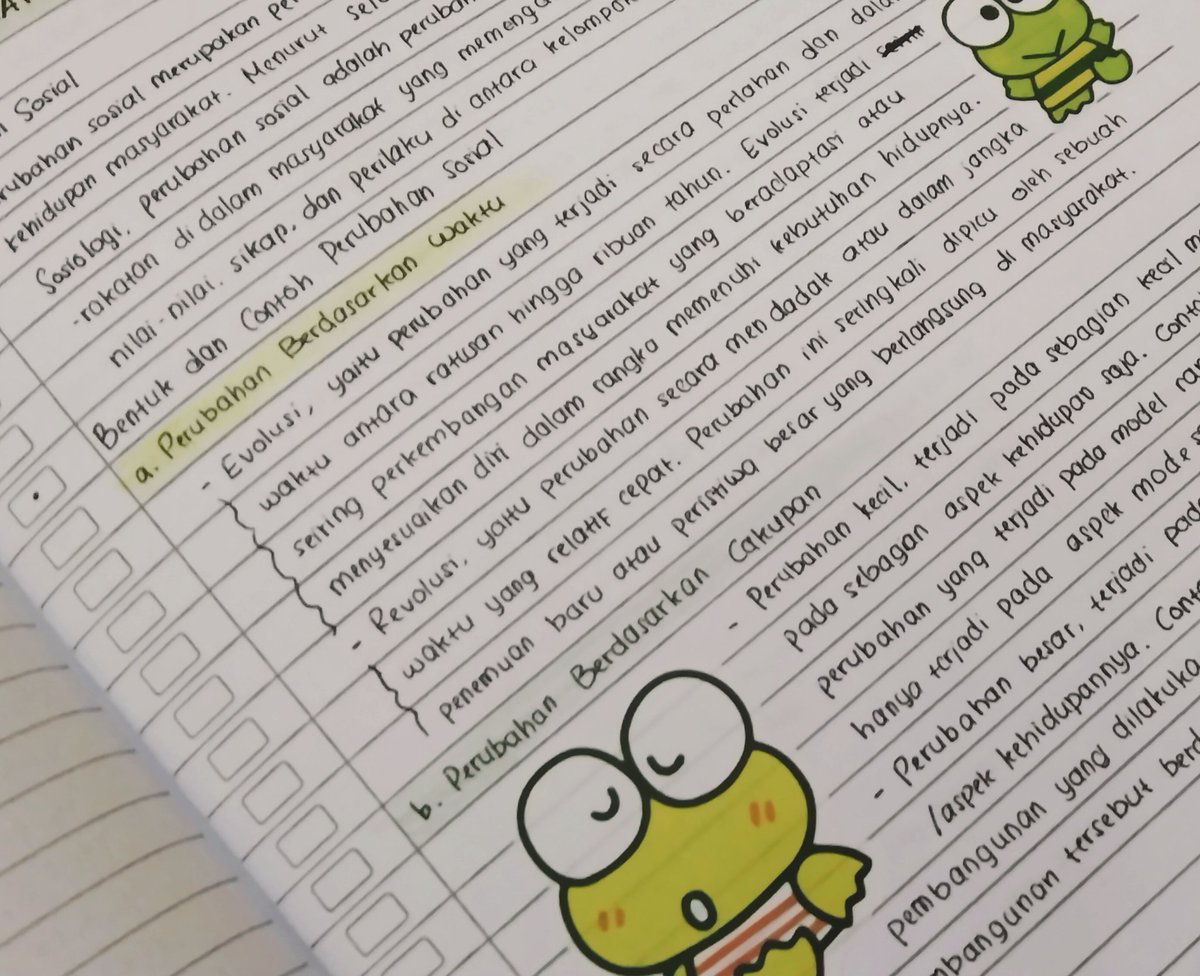 Sosial
sosial merupakan
kehidupan masyarakat. Menurut
Sosiologi, perubahan sosial adalah
-rakatan di dalam masyarakat yang
nilai-nilai, sikap, dan perilaku di antara
Bentuk dan Contoh Perubahan Sosial
a. Perubahan Berdasarkan Waktu
- Evolusi, yaitu perubahan yang terjadi secara perlahan dan
waktu antara ratusan hingga ribuan tahun. Evolusi terjadi
seiring perkembangan masyarakat yang beradaptasi atau
menyesuaikan diri dalam rangka memenuhi kebutuhan hidupnya.
- Revolusi, yaitu perubahan secara mendadak atau dalam jangka
waktu yang relatif cepat. Perubahan ini seringkali dipicu oleh sebuah
penemuan baru atau peristiwa besar yang berlangsung di masyarakat.
b. Perubahan Berdasarkan Cakupan
- Perubahan kecil, terjadi pada sebagian kecil
pada sebagan aspek kehidupan saja.
perubahan yang terjadi pada model
hanya terjadi pada aspek mode
- Perubahan besar, terjadi
/aspek kehidupannya.
pembangunan yang
tersebut